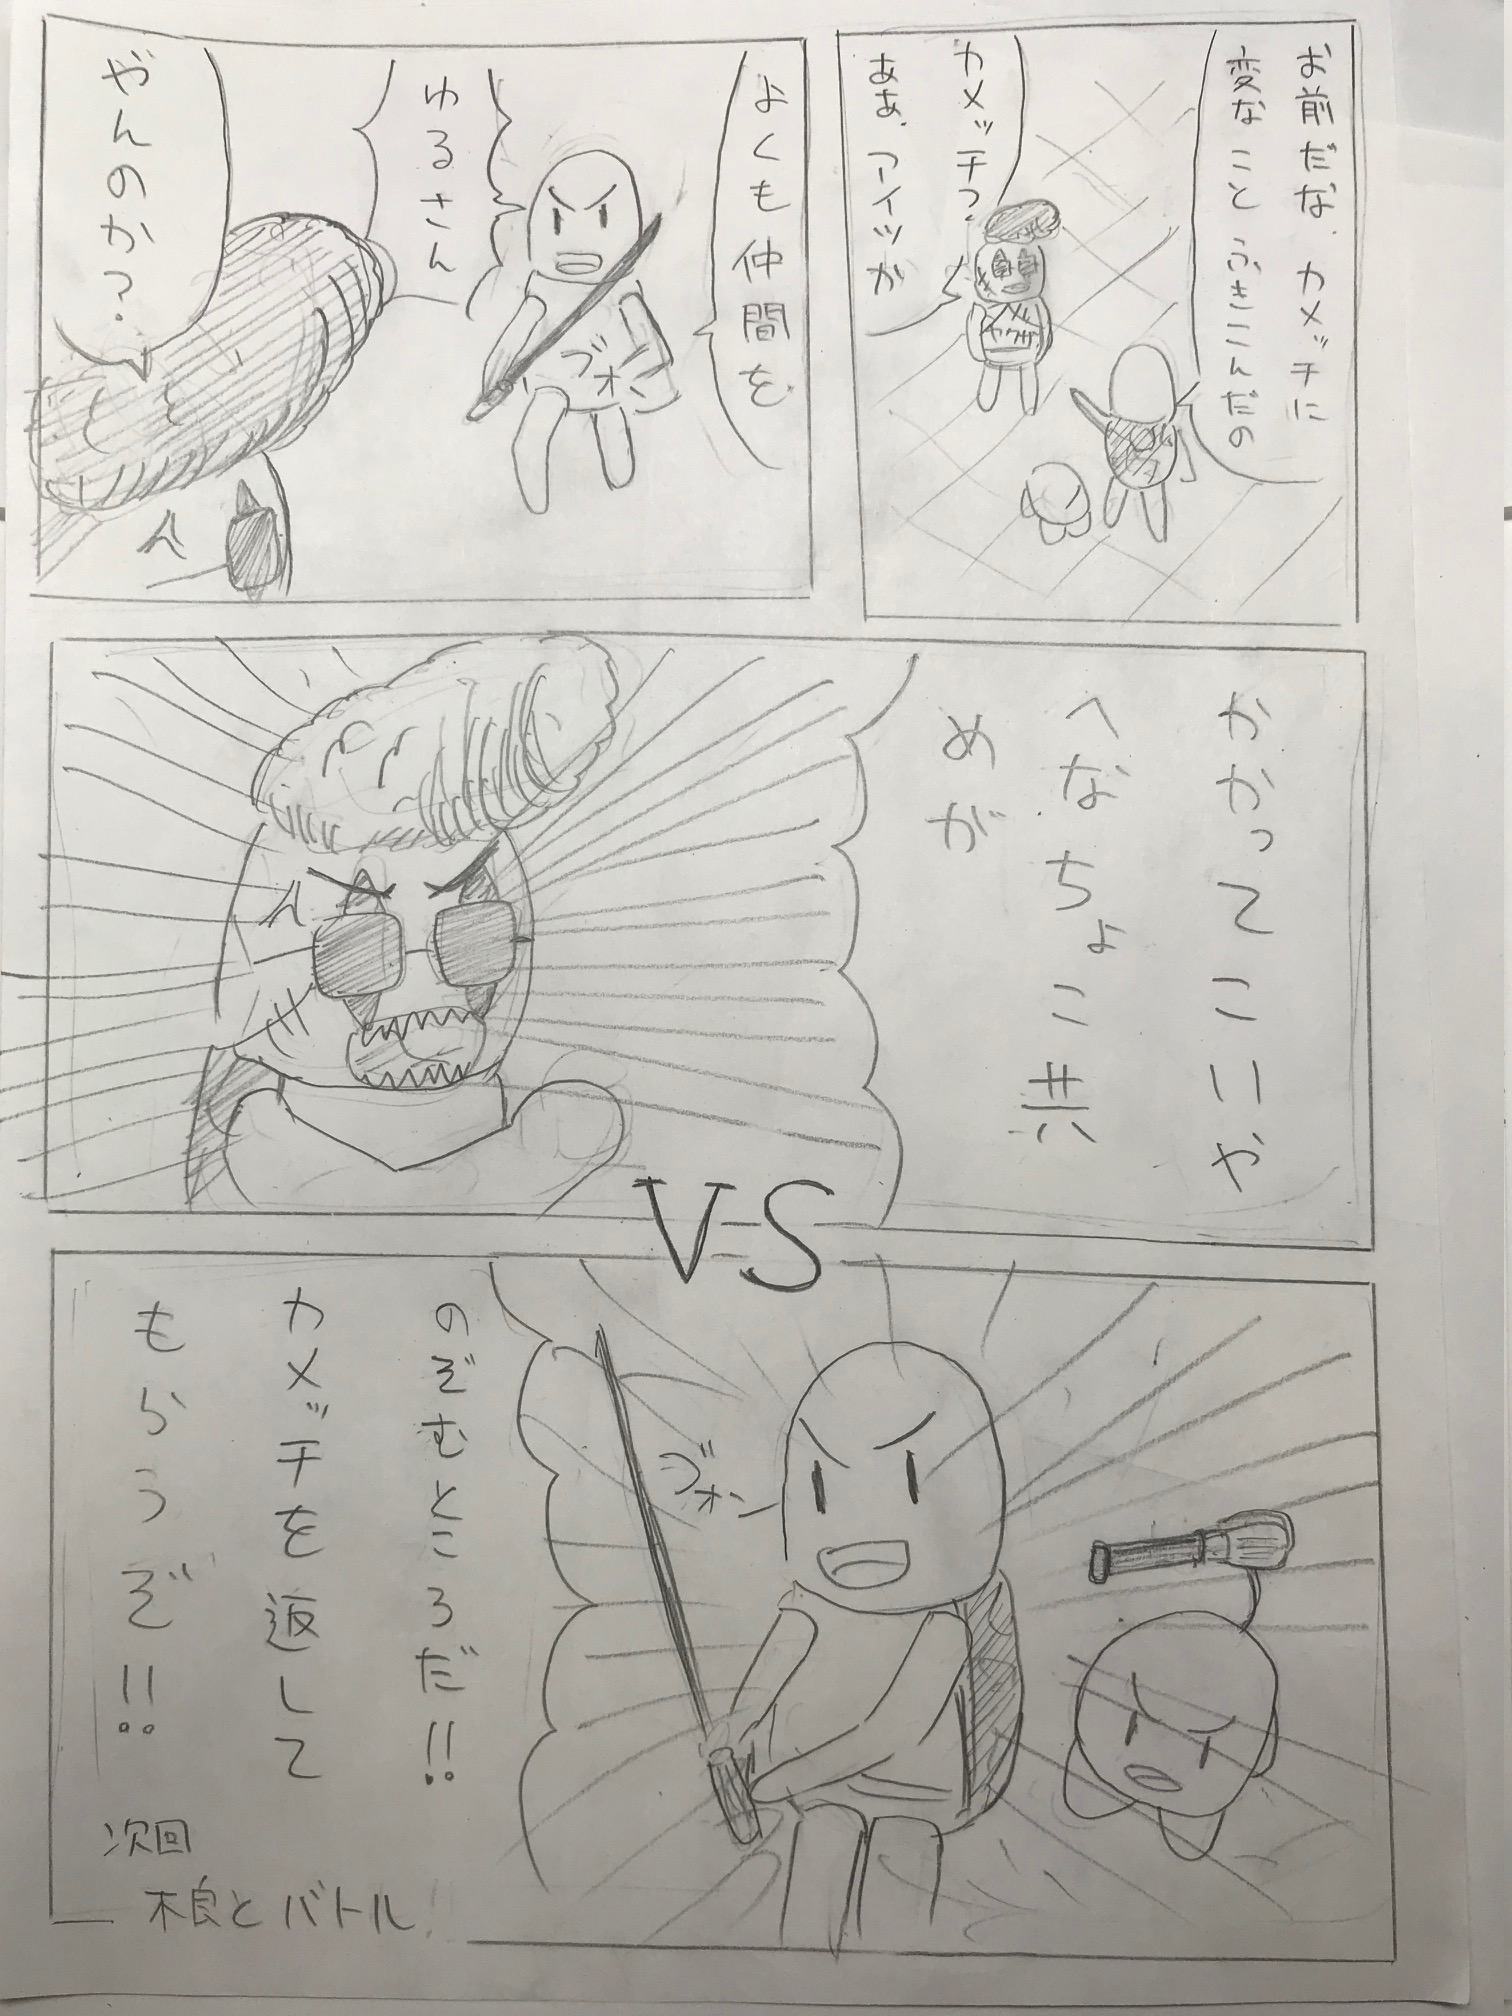 お前だな、カメッチに
変なこと ふきこんだの
カメッチ?
ああ、アイツか
ヤクザ
よくも仲間を
ゆるさん
ブォン
やんのか?
かかってこいや
へなちょこ共
めが
VS
ブォン
のぞむところだ!!
カメッチを返して
もらうぞ!!
次回
木良とバトル!